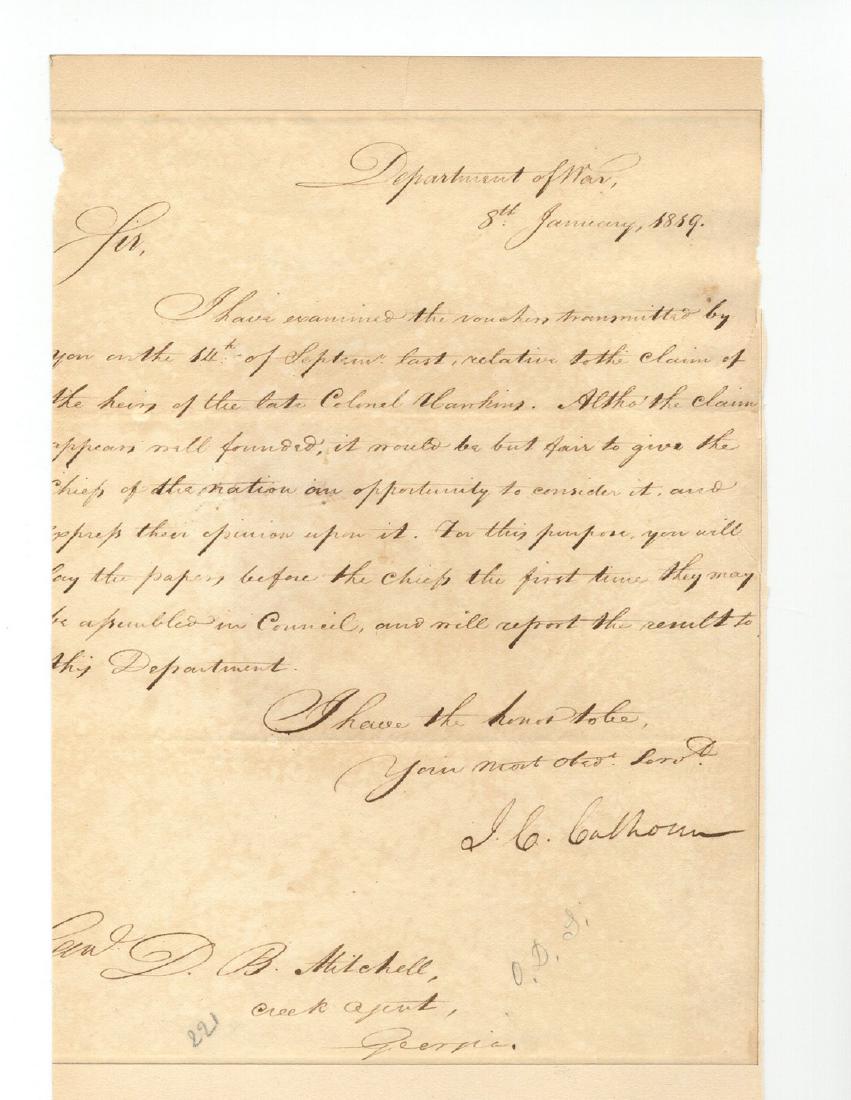 Department of War,
8th January, 1819.
Sir,
I have examined the vouchers transmitted by
you on the 14th of Septemr last, relative to the claim of
the heirs of the late Colonel Hawkins. Altho' the claim
appears well founded, it would be but fair to give the
chiefs of the nation an opportunity to consider it, and
express their opinion upon it. For this purpose, you will
lay the papers before the chiefs the first time they may
be assembled in Council, and will report the result to
this Department.
I have the honor to be,
Your most Obedt. Servt.
J. C. Calhoun
Genl. D. B. Mitchell,
Creek Agent,
Georgia.
O. D. S.
221